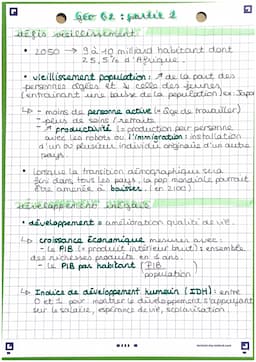 GEO G2 : partie 2
défis vieillissement
• 2050 → 9 à 10 milliard habitant dont
25,5% d'Afrique.
• vieillissement population : ↗ de la part des
personnes âgées et ↘ celle des jeunes
(entraînant une baisse de la population) ex: Japon
↳ - moins de personne active (= âge de travailler)
- plus de soins / retraite
- ↗ productivité (= production par personne
avec les robots ou l'immigration : installation
d'un ou plusieur individu originaire d'un autre
pays.
• Lorsque la transition démographique sera
fini dans tous les pays, la pop mondiale pourrait
être amenée à baisser. (en 2100)
développement inégales
• développement = amélioration qualité de vie.
↳ croissance économique mesurée avec :
- le PIB (= produit intérieur brut) : ensemble
des richesses produites en 1 ans.
- le PIB par habitant (PIB
population)
↳ Indice de développement humain (IDH) : entre
0 et 1 pour montrer le développement s'appuyant
sur le salaire, espérance de vie, scolarisation.